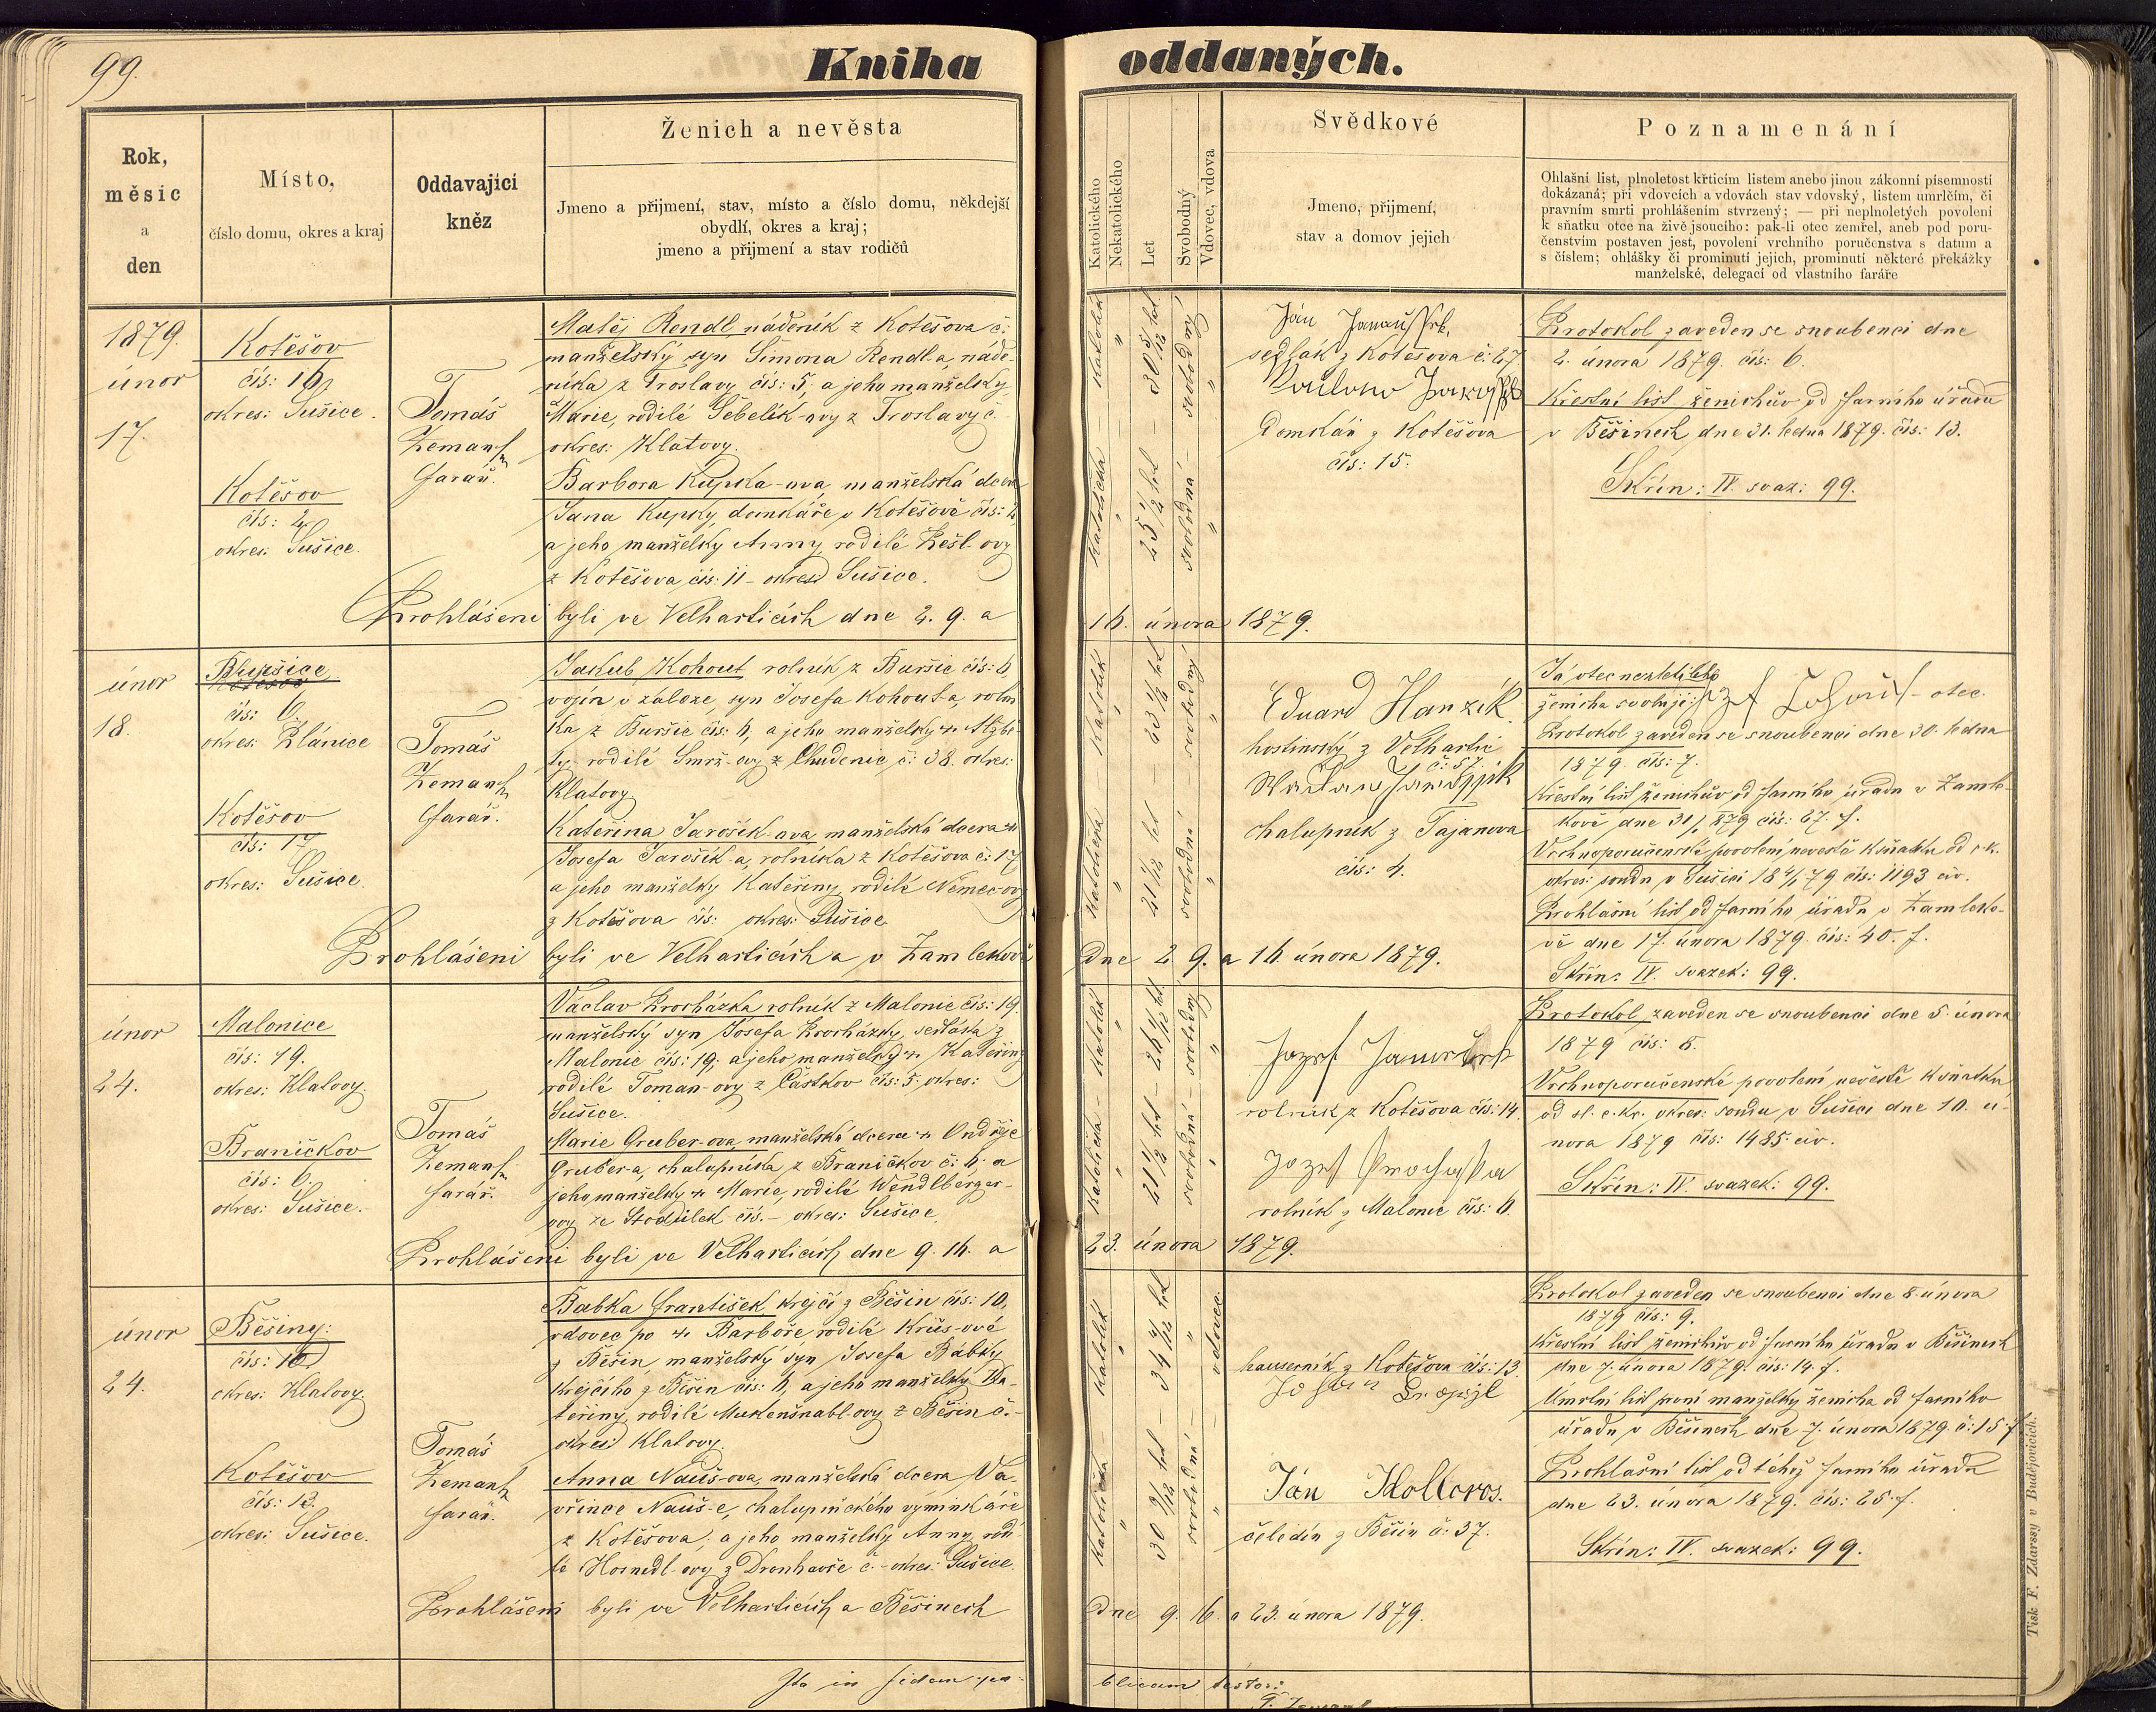 99.
Kniha oddaných.
Rok,
měsíc
a
den
Místo,
číslo domu, okres a kraj
Oddavající
kněz
Ženich a nevěsta
Jmeno a přijmení, stav, místo a číslo domu, někdejší
obydlí, okres a kraj;
jmeno a přijmení a stav rodičů
Katolického
Nekatolického
Let
Svobodný
Vdovec, vdova
Svědkové
Jmeno, přijmení,
stav a domov jejich
Poznamenání
Ohlašní list, plnoletost křticím listem anebo jinou zákonní písemností
dokázaná; při vdovcích a vdovách stav vdovský, listem umrlčím, či
pravním smrti prohlášením stvrzený; — při neplnoletých povolení
k sňatku otce na živě jsoucího: pak-li otec zemřel, aneb pod poru-
čenstvím postaven jest, povolení vrchního poručenstva s datum a
s číslem; ohlášky či prominutí jejich, prominutí některé překážky
manželské, delegací od vlastního faráře
1879.
únor
17.
Kotěšov
čís: 16
okres: Sušice.
Kotěšov
čís: 2
okres: Sušice.
Tomáš
Zeman
farář.
Matěj Rendl, nádeník z Kotěšova č:
manželský syn Šimona Rendl-a, náde-
níka z Troslavy čís: 5, a jeho manželky
Marie, rodilé Šebelík-ovy z Troslavy č.
okres: Klatovy.
Barbora Kupka-ova, manželská dcera
Jana Kupky, domkáře v Kotěšově čís: 2,
a jeho manželky Anny, rodilé Kešl-ovy
z Kotěšova čís: 11 - okres Sušice.
Prohlášeni byli ve Velharticích dne 2. 9. a 16. února 1879.
katolík
30 5/12 let
svobodný
katolička
25 1/2 let
svobodná
Ján
sedlák z Kotěšova č: 27
Domkář z Kotěšova
čís: 15.
Protokol zaveden se snoubenci dne
2. února 1879. čís: 6.
Křestní list ženichův od farního úřadu
v Běšinech, dne 31. ledna 1879. čís: 13.
Skřín: IV. svaz: 99.
únor
18.
Buršice
čís: 6.
okres: Plánice
Kotěšov
čís: 17
okres: Sušice.
Tomáš
Zeman
farář.
Jakub Kohout, rolník z Buršic čís: 6
vojín v záloze, syn Josefa Kohout-a, rolní
ka, z Buršic čís: 6, a jeho manželky + Alžbě-
ty, rodilé Smrž-ovy z Chudenic č: 38. okres:
Klatovy
Kateřina Jarošík-ova, manželská dcera +
Josefa Jarošík-a, rolníka z Kotěšova č: 17
a jeho manželky Kateřiny, rodilé Němec-ovy
z Kotěšova čís: okres: Sušice
Prohlášeni byli ve Velharticích a v Zamlekově dne 2. 9. a 16. února 1879.
katolík
23 1/2 let
svobodný
katolička
21 1/12 let
svobodná
Eduard Hanzik
hostinský z Velhartic
č: 57.
chalupník z Tajanova
čís: 4.
Já otec nezletilého
ženicha svoluji: - otec.
Protokol zaveden se snoubenci dne 30. ledna
1879. čís: 7.
Křestní list ženichův od farního úřadu v Zamle-
kově dne 31/1 879 čís: 27. f.
Vrchnoporučenské povolení nevěstě k sňatku od c. k.
okres: soudu v Sušici 18 4/2 79 čís: 1193 civ.
Prohlášní list od farního úřadu v Zamleko-
vě dne 17. února 1879. čís: 40. f.
Skřín: IV. svazek: 99.
únor
24.
Malonice
čís: 19.
okres: Klatovy.
Braníčkov
čís: 6.
okres: Sušice.
Tomáš
Zeman
farář.
Václav Procházka rolník z Malonic čís: 19.
manželský syn Josefa Procházky, sedláka z
Malonic čís: 19; a jeho manželky + Kateřiny
rodilé Toman-ovy z Částkov čís: 5, okres:
Sušice.
Marie Gruber-ova, manželská dcera + Ondřeje
Gruber-a, chalupníka z Braníčkov č: 6; a
jeho manželky + Marie, rodilé Wendlberger-
ovy ze Stodůlek čís. - okres: Sušice.
Prohlášeni byli ve Velharticích, dne 9. 16. a 23. února 1879.
katolík
26 1/12 let
svobodný
katolička
21 1/2 let
svobodná
Jozef
rolník z Kotěšova čís: 14.
Jozef Prochaska
rolník z Malonic čís: 6.
Protokol zaveden se snoubenci dne 5. února
1879 čís: 8.
Vrchnoporučenské povolení nevěstě k sňatku
od sl. c. kr. okres: soudu v Sušici dne 10. ú-
nora 1879 čís: 1485. civ.
Skřín: IV. svazek: 99.
únor
24.
Běšiny:
čís: 10
okres: Klatovy.
Kotěšov
čís: 13.
okres: Sušice.
Tomáš
Zeman
farář.
Babka František, krejčí z Běšin čís: 10,
vdovec po + Barboře rodilé Krůs-ové
z Běšin, manželský syn Josefa Babky,
krejčího z Běšin čís: 6, a jeho manželky Ka-
teřiny, rodilé Mukenšnabl-ovy z Běšin č.-
okres Klatovy.
Anna Nauš-ova, manželská dcera Va-
vřince Nauš-e, chalupnického výminkáře
z Kotěšova; a jeho manželky Anny, rodi-
lé Hosnedl-ovy z Drouhavče č.- okres: Sušice.
Prohlášeni byli ve Velharticích a Běšinech dne 9. 16. a 23. února 1879.
katolík
34 4/12 let
vdovec
katolička
30 9/12 let
svobodná
hauserník z Kotěšova čís: 13.
Ján
čeledín z Běšin č: 37.
Protokol zaveden se snoubenci dne 8. února
1879 čís: 9.
Křestní list ženichův od farního úřadu v Běšinech
dne 7. února 1879. čís: 14. f.
Úmrtní list první manželky ženicha od farního
úřadu v Běšinech dne 7. února 1879. č: 15. f
Prohlašní list od téhož farního úřadu
dne 23. února 1879. čís: 25. f.
Skřín: IV. svazek: 99.
Ita in fidem pu-blicam testor:
Tisk F. Zdarssy v Budějovicích.